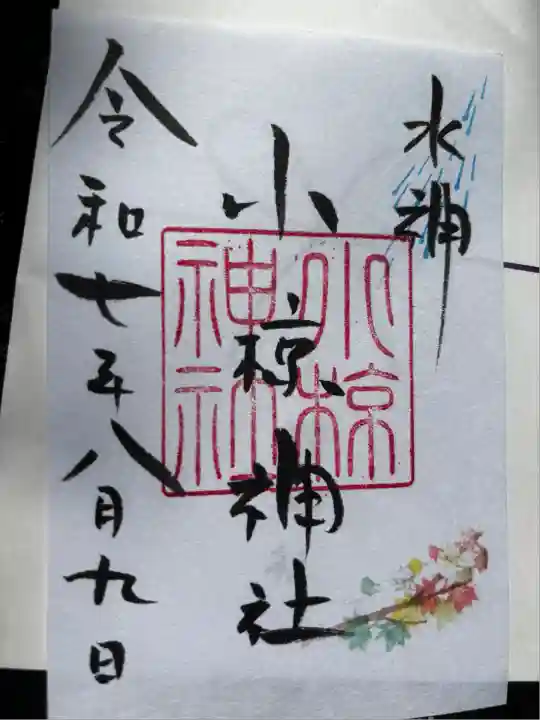 水神
小椋神社
小椋神社
令和七年八月九日